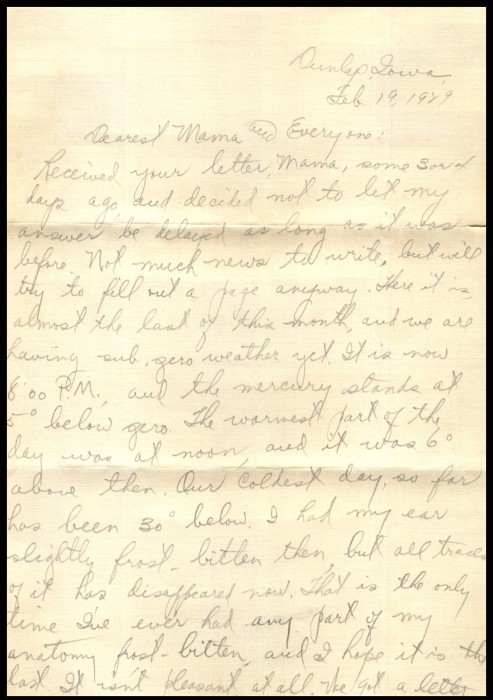 Dunlap, Iowa,
Feb. 19, 1929
Dearest Mama and Everyone:
Received your letter, Mama, some 3 or 4
days ago and decided not to let my
answer be delayed as long as it was
before. Not much news to write, but will
try to fill out a page anyway. Here it is,
almost the last of this month, and we are
having sub-zero weather yet. It is now
8:00 P.M., and the mercury stands at
5° below zero. The warmest part of the
day was at noon, and it was 6°
above then. Our coldest day, so far
has been 30° below. I had my ear
slightly frost-bitten then, but all traces
of it has disappeared now. That is the only
time I've ever had any part of my
anatomy frost-bitten, and I hope it is the
last. It isn't pleasant at all. We got a letter